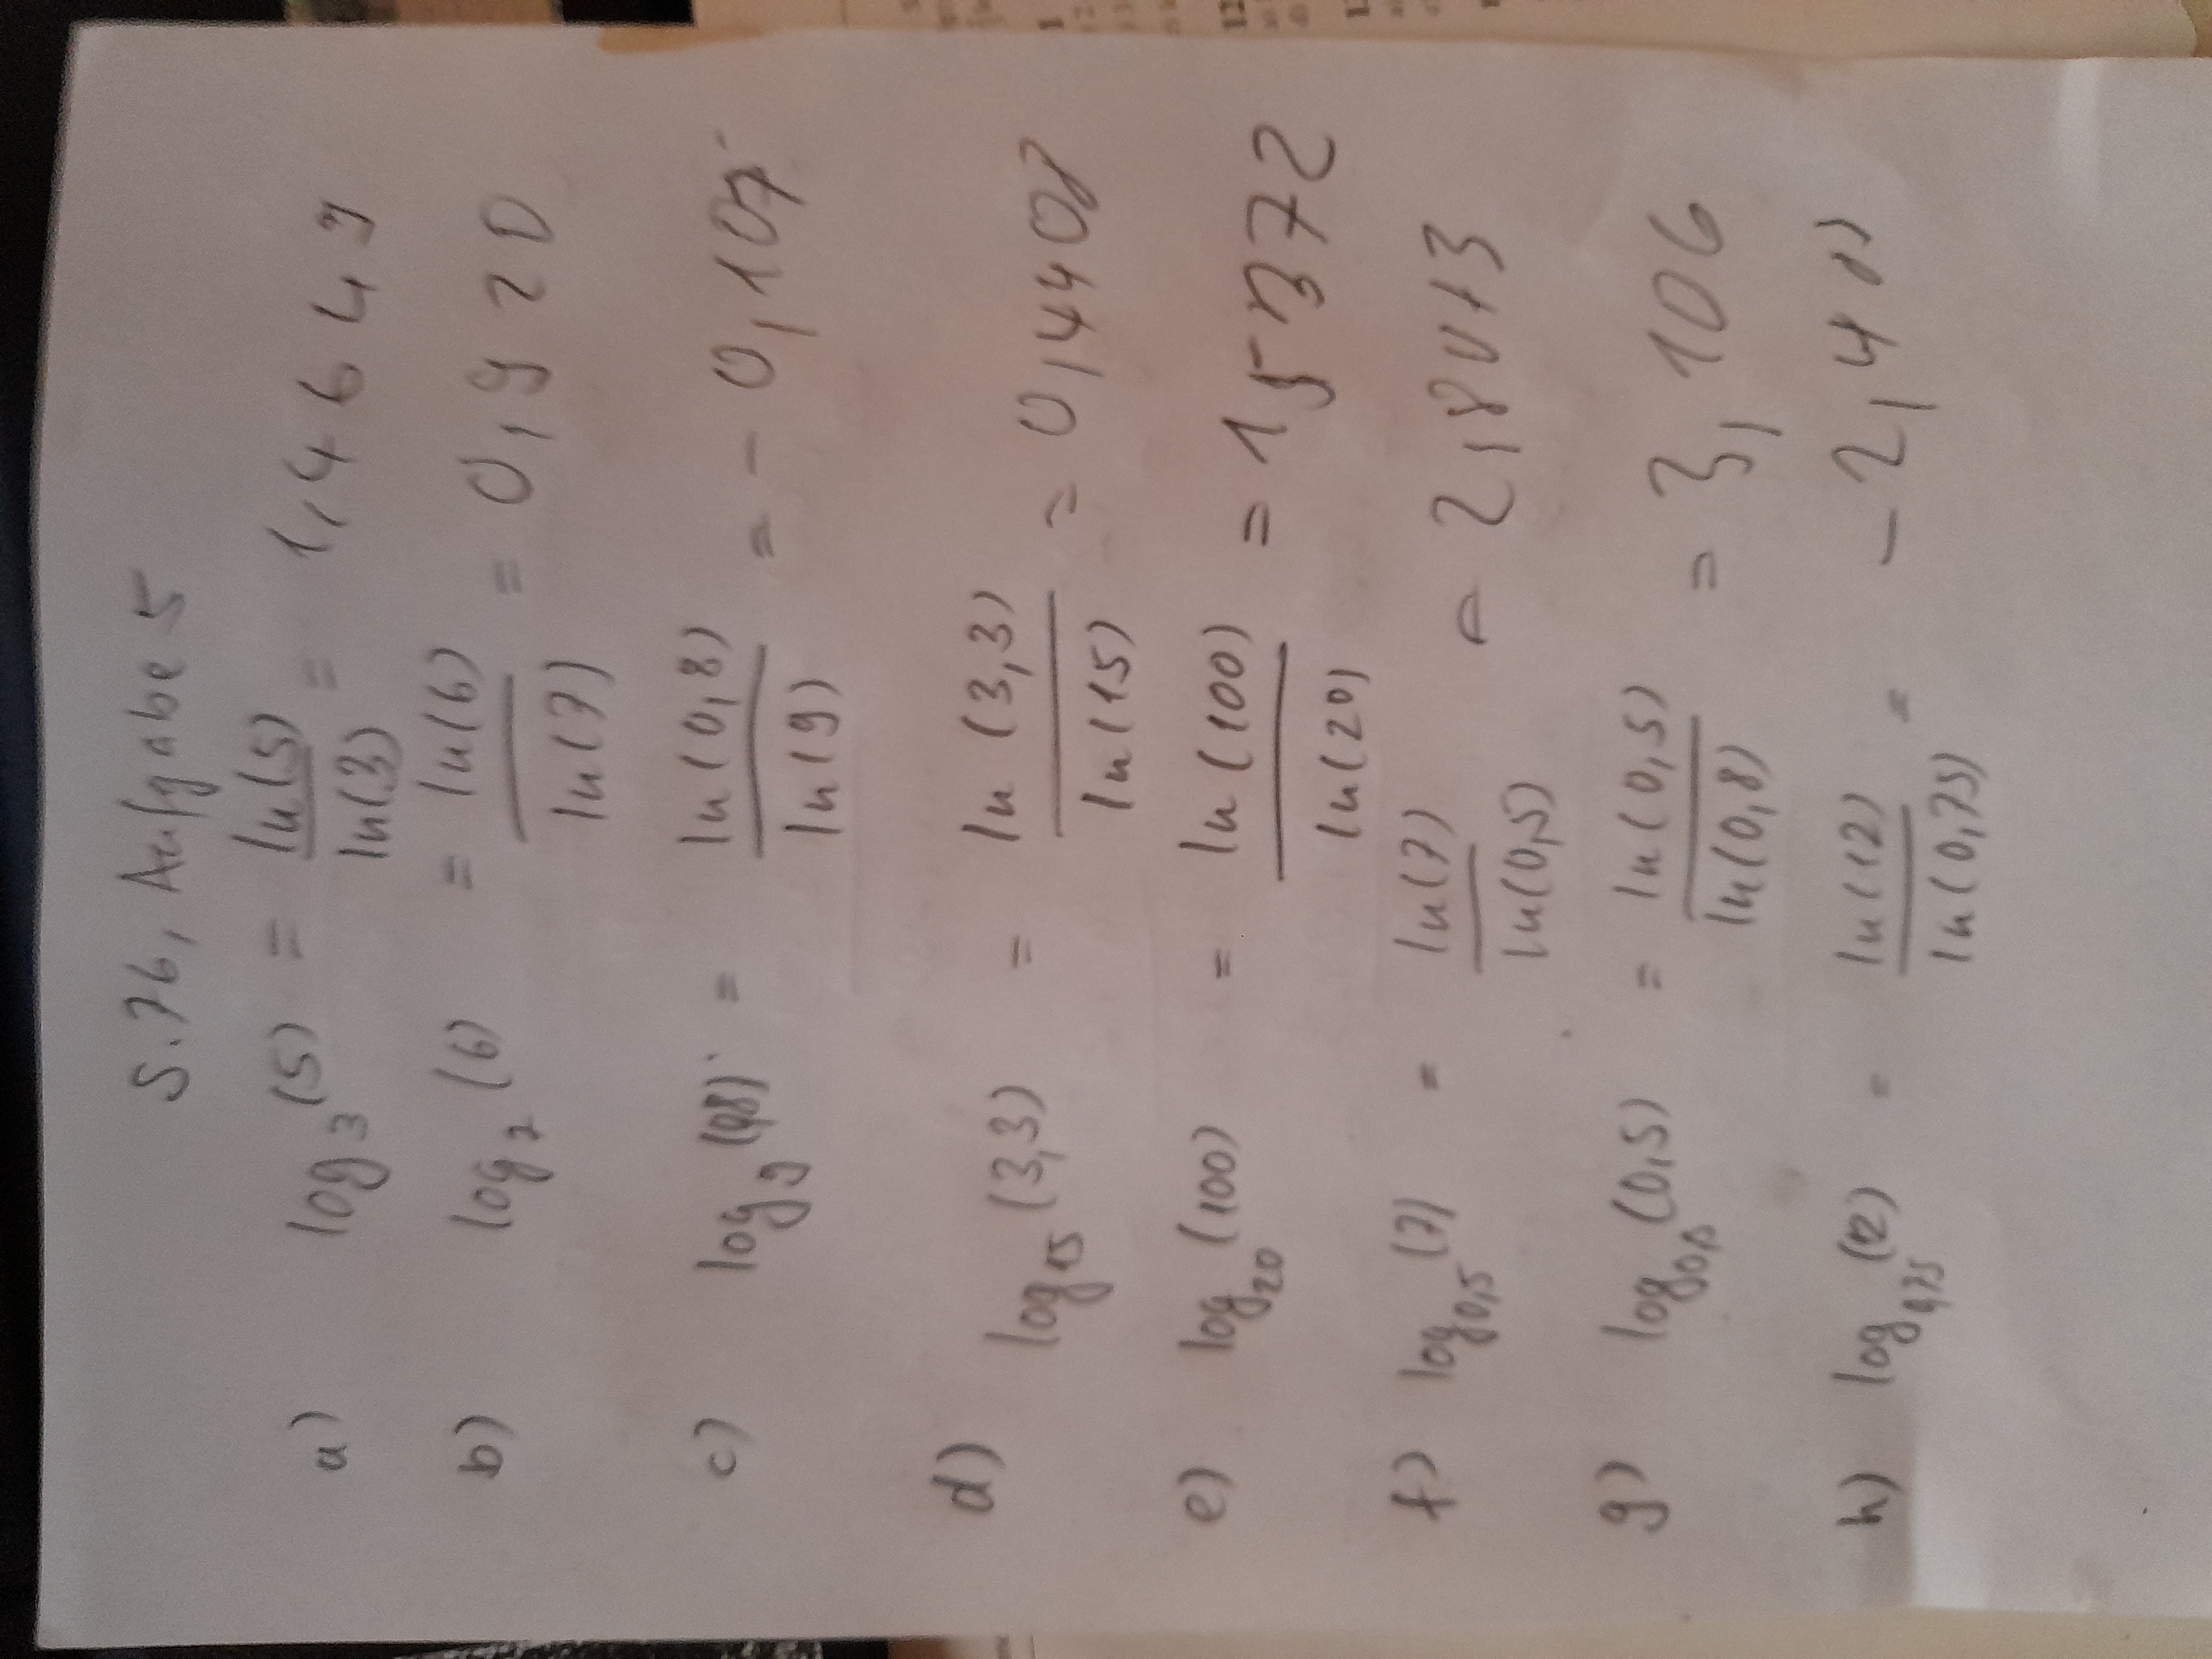 S. 76, Aufgabe 5
a) log₃(5) = ln(5)/ln(3) = 1,4649
b) log₇(6) = ln(6)/ln(7) = 0,920
c) log₉(0,8) = ln(0,8)/ln(9) = -0,107
d) log₁₅(3,3) = ln(3,3)/ln(15) = 0,4408
e) log₂₀(100) = ln(100)/ln(20) = 1,5372
f) log₀,₅(7) = ln(7)/ln(0,5) =
g) log₀,₈(0,5) = ln(0,5)/ln(0,8) = 3,106
h) log₀,₇₅(12) = ln(12)/ln(0,75) =